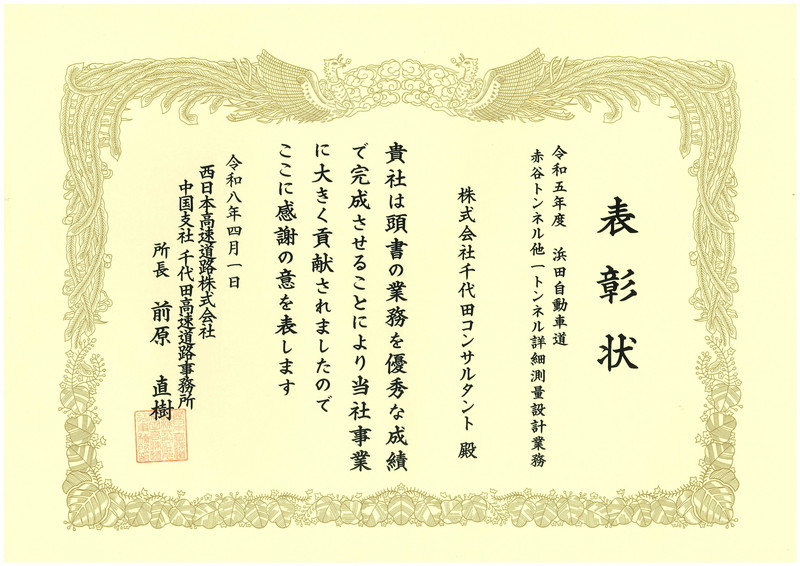 表彰状
令和五年度 浜田自動車道
赤谷トンネル他一トンネル詳細測量設計業務
株式会社千代田コンサルタント 殿
貴社は頭書の業務を優秀な成績
で完成させることにより当社事業
に大きく貢献されましたので
ここに感謝の意を表します
令和八年四月一日
西日本高速道路株式会社
中国支社 千代田高速道路事務所
所長 前原 直樹